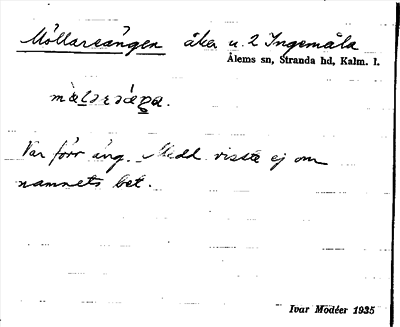 Möllareängen åker u. 2 Ingemåla
Ålems sn, Stranda hd, Kalm. l.
Var förr äng. Medd. visste ej om
namnets bet.
Ivar Modéer 1935